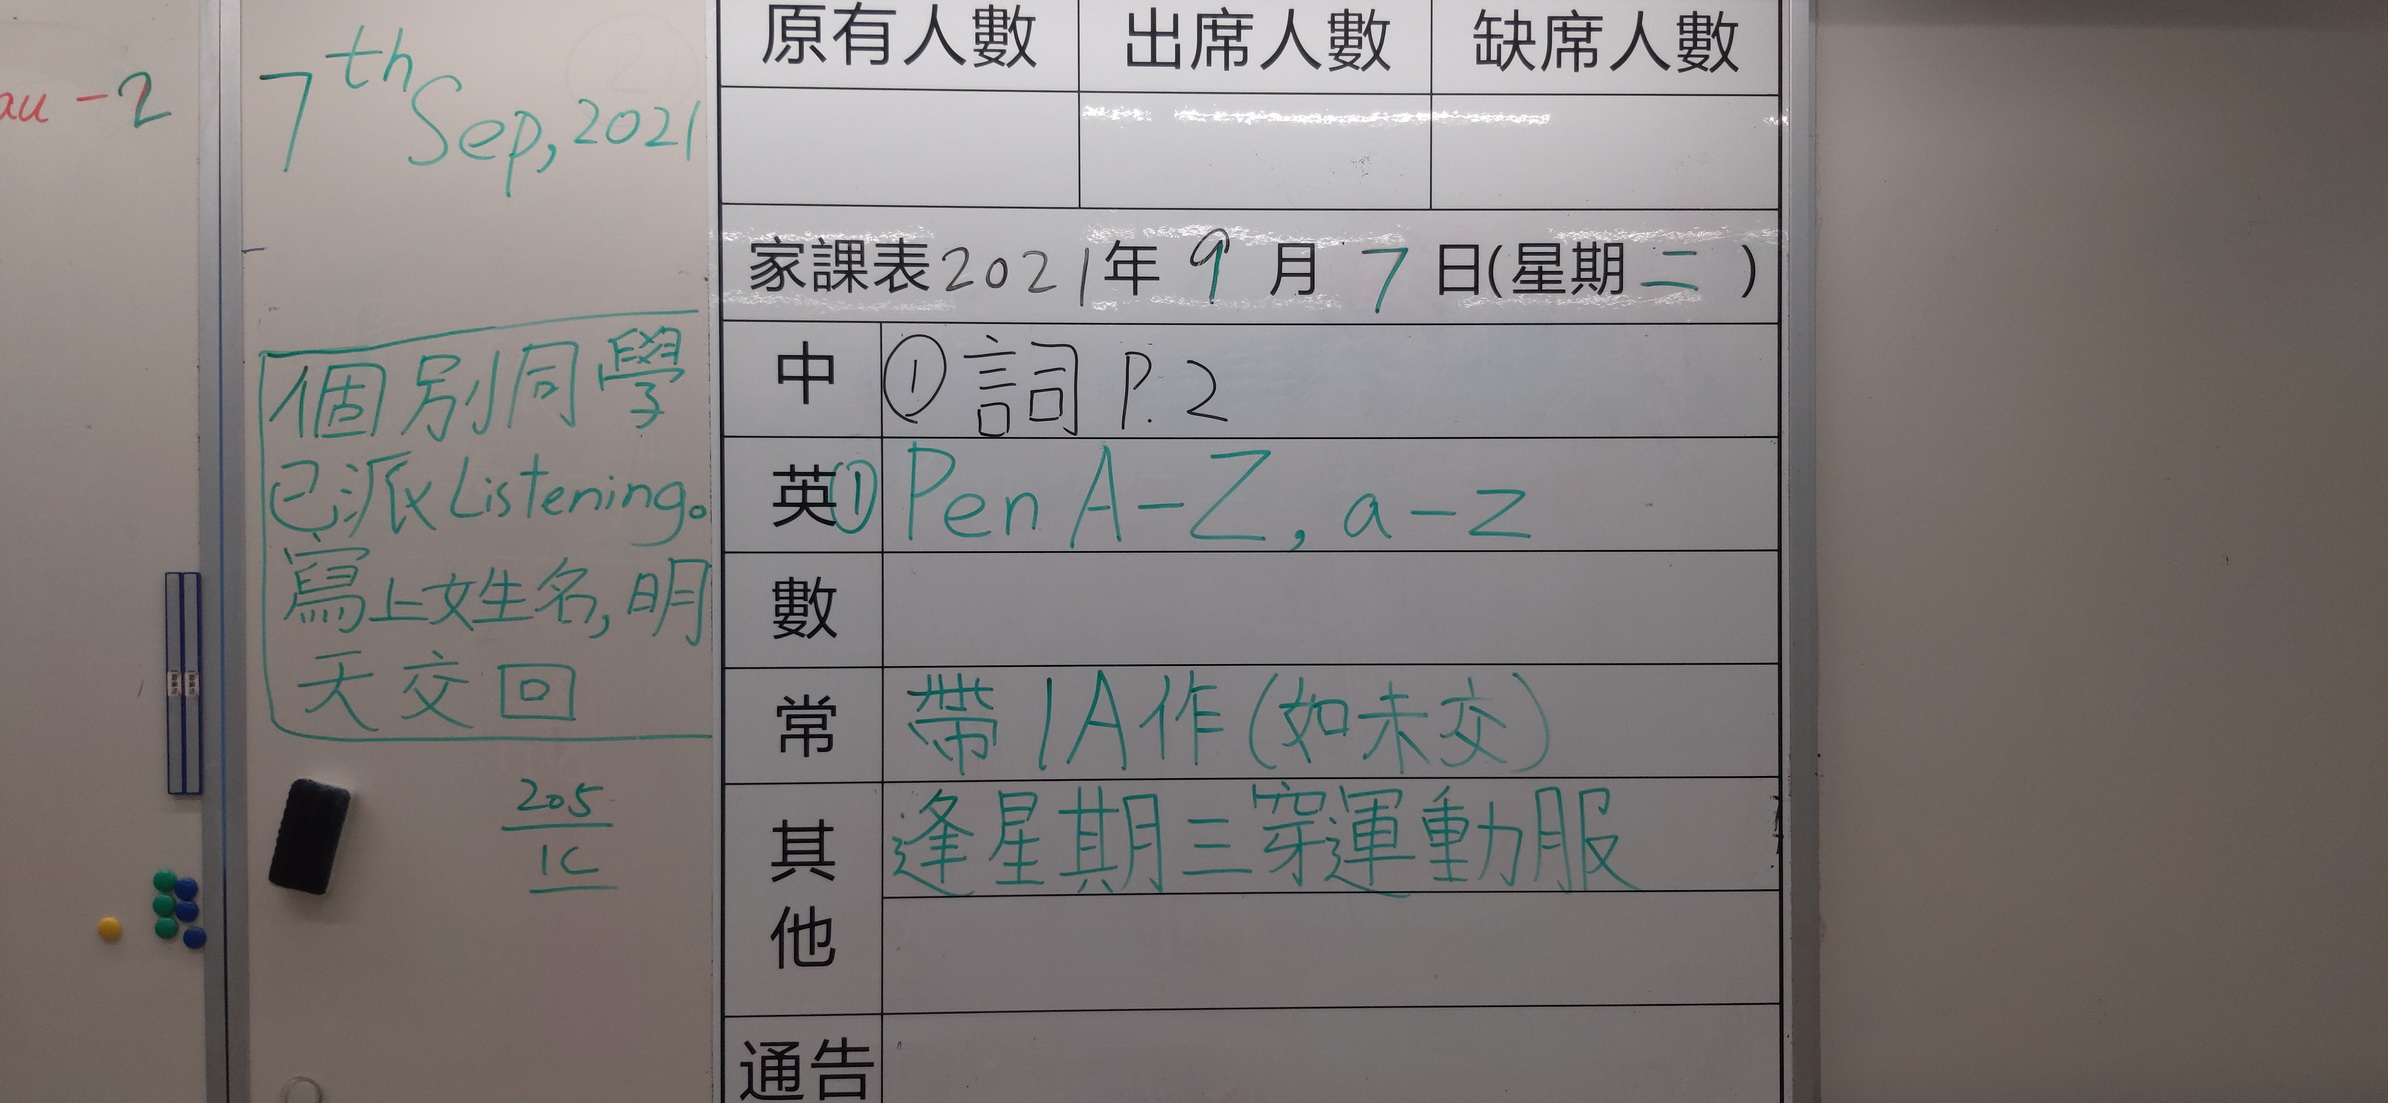 au - 2
7th Sep, 2021
個別同學
已派 Listening。
寫上姓名, 明
天交回
205
1C
原有人數 出席人數 缺席人數
家課表 2021年 9 月 7 日(星期 二 )
中 ① 詞 P.2
英 ① Pen A-Z, a-z
數
常 帶 1A作 (如未交)
其他 逢星期三穿運動服
通告